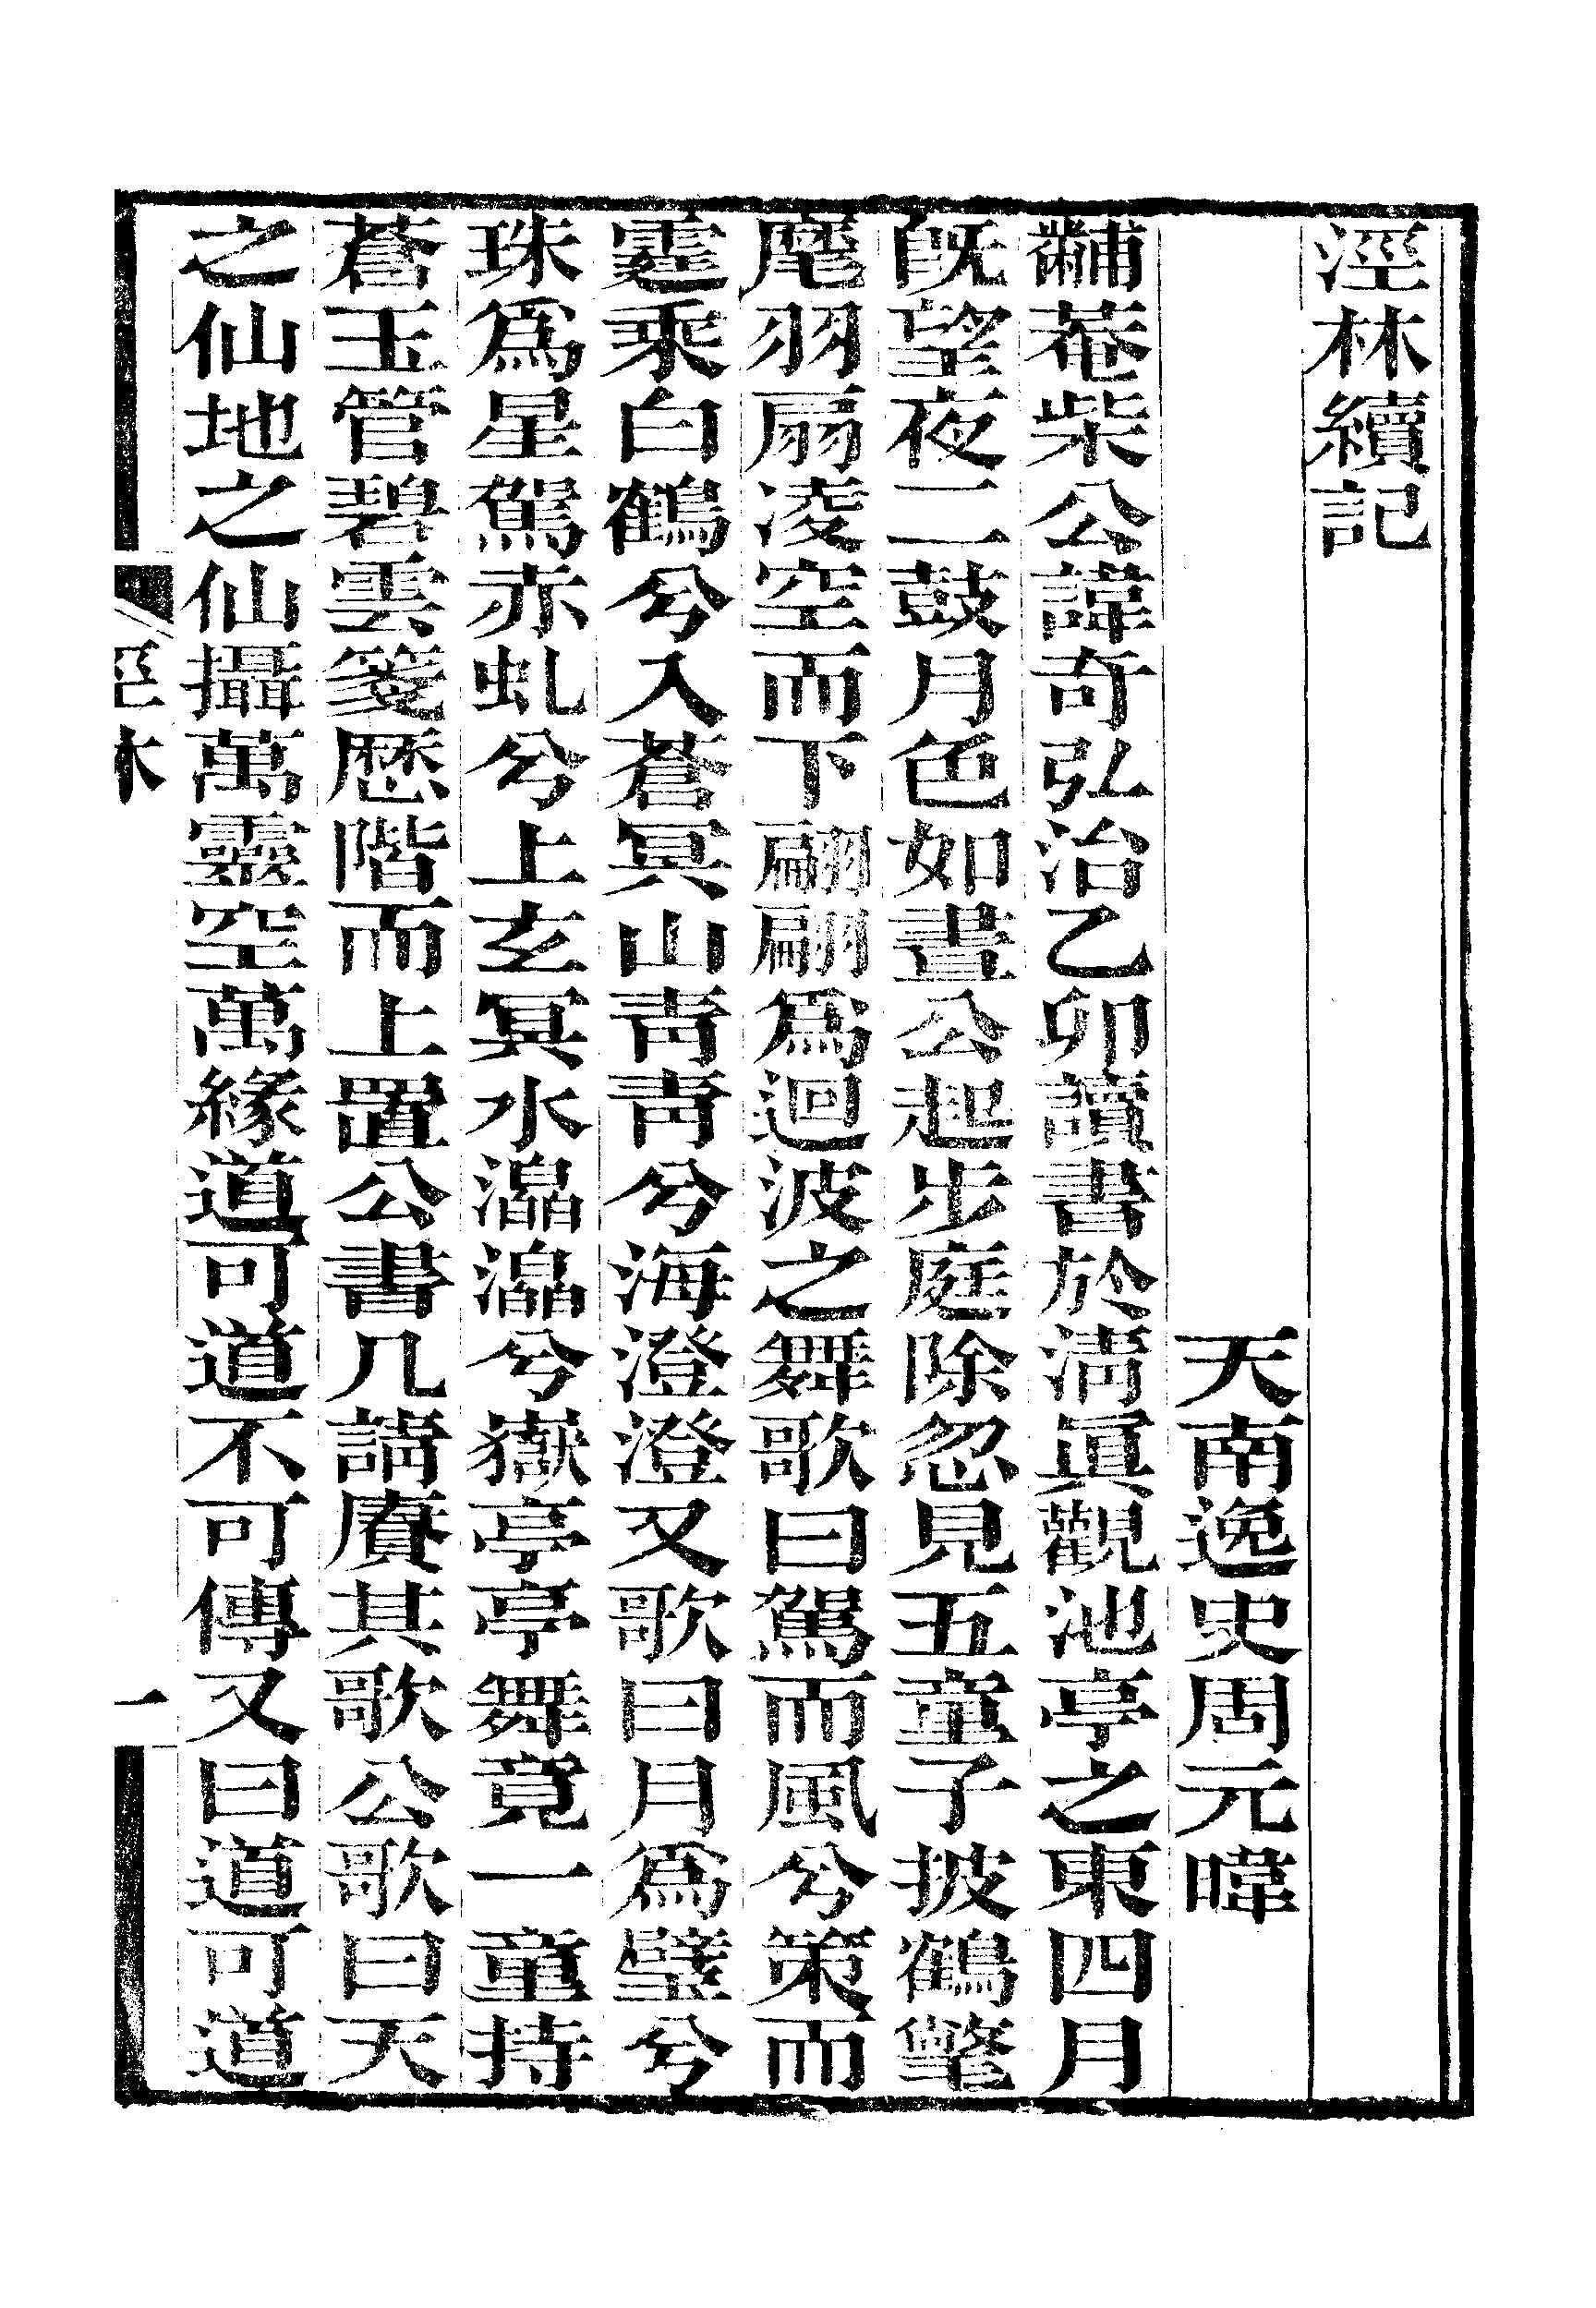 涇林續記
天南逸史周元暐
黼菴柴公諱奇弘治乙卯讀書於淸眞觀池亭之東四月
旣望夜二鼓月色如晝公起步庭除忽見五童子披鶴氅
麾羽扇凌空而下翩翩爲迴波之舞歌曰駕而風兮策而
霆乘白鶴兮入蒼冥山靑靑兮海澄澄又歌曰月爲璧兮
珠爲星駕赤虬兮上玄冥水兮嶽亭亭舞竟一童持
蒼玉管碧雲箋歷階而上置公書几請賡其歌公歌曰天
之仙地之仙攝萬靈空萬緣道可道不可傳又曰道可道
涇林 一